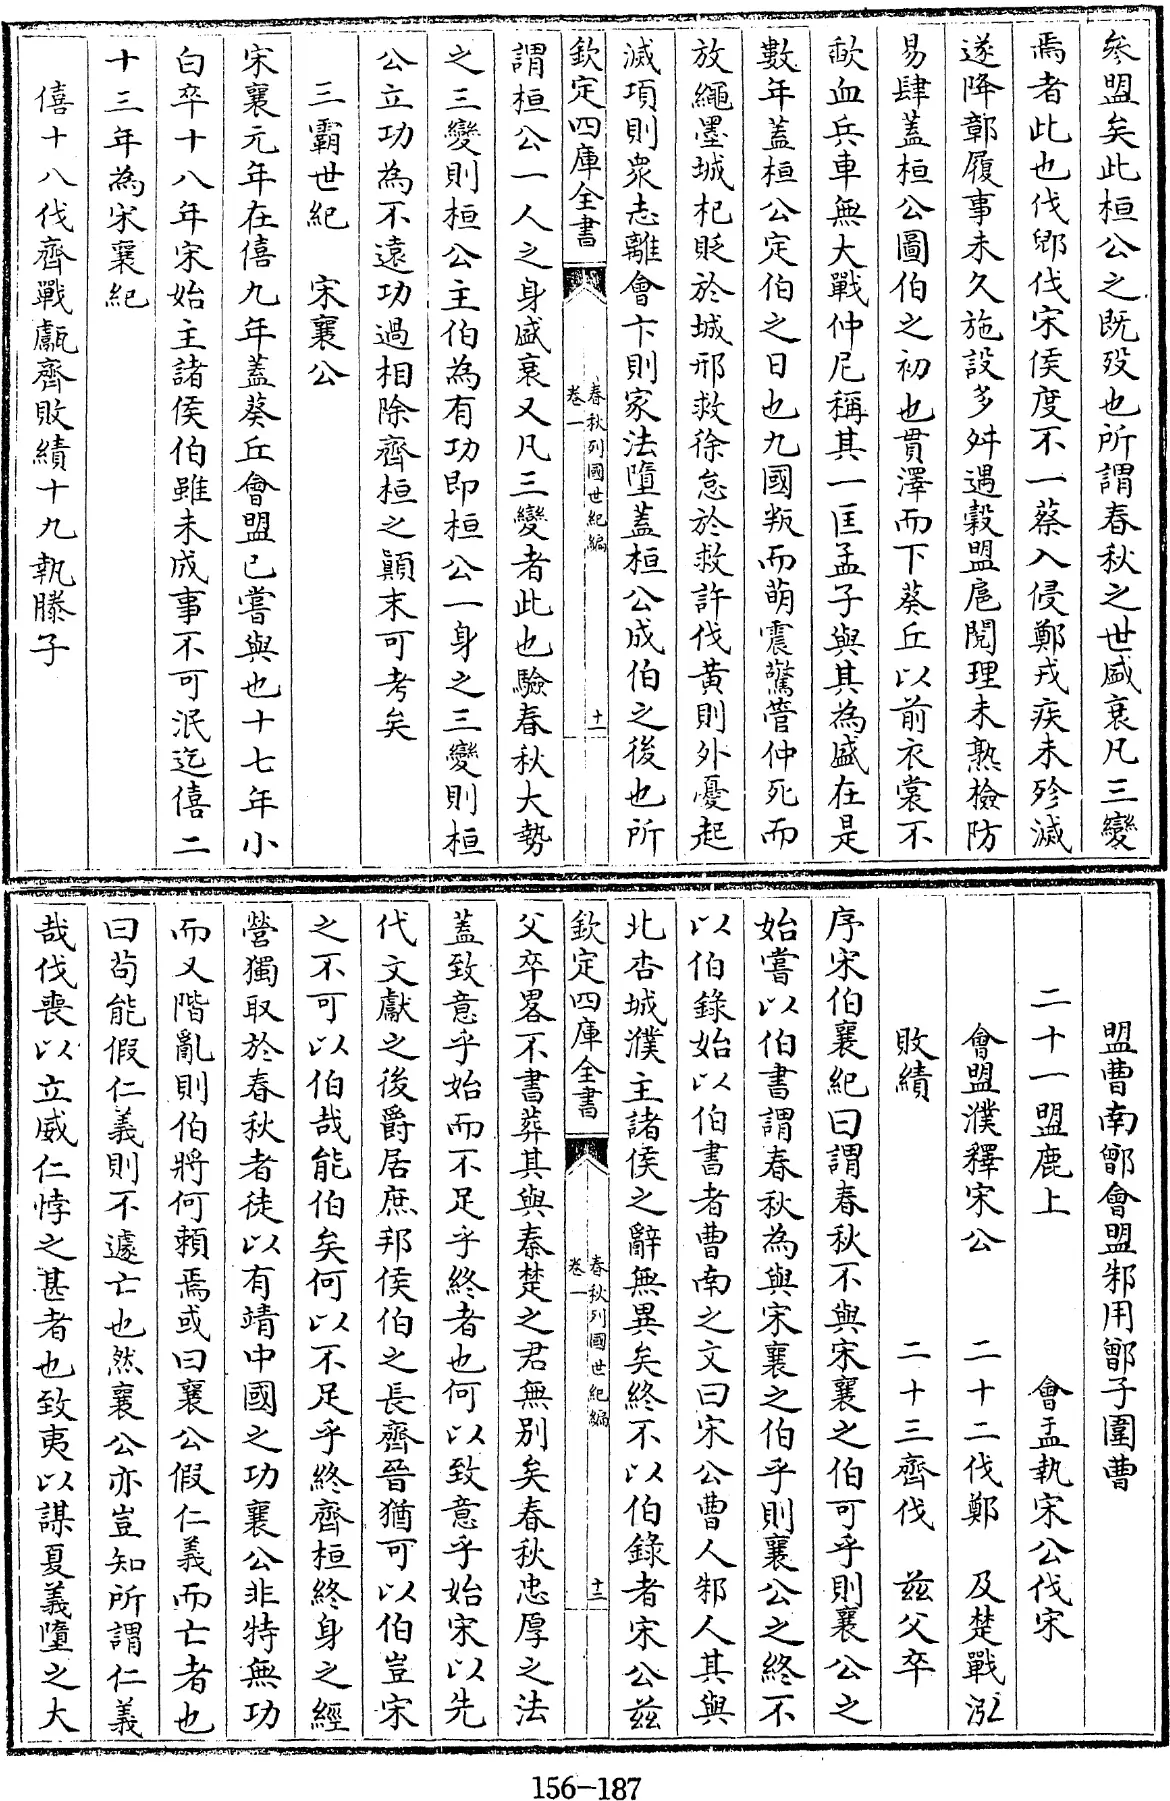 參盟矣此桓公之既歿也所謂春秋之世盛衰凡三變
焉者此也伐郳伐宋侯度不一蔡入侵鄭戎疾未殄滅
遂降鄣履事未久施設多舛遇穀盟扈閱理未熟檢防
易肆蓋桓公圖伯之初也貫澤而下葵丘以前衣裳不
歃血兵車無大戰仲尼稱其一匡孟子與其為盛在是
數年蓋桓公定伯之日也九國叛而萌震驚管仲死而
放繩墨城杞貶於城邢救徐怠於救許伐黃則外憂起
滅項則衆志離會卞則家法墮蓋桓公成伯之後也所
欽定四庫全書
春秋列國世紀編
卷一
十一
謂桓公一人之身盛衰又凡三變者此也驗春秋大勢
之三變則桓公主伯為有功即桓公一身之三變則桓
公立功為不遠功過相除齊桓之顛末可考矣
三霸世紀 宋襄公
宋襄元年在僖九年蓋葵丘會盟已嘗與也十七年小
白卒十八年宋始主諸侯伯雖未成事不可泯迄僖二
十三年為宋襄紀
僖十八伐齊戰甗齊敗績十九執滕子
盟曹南鄫會盟邾用鄫子圍曹
二十一盟鹿上 會盂執宋公伐宋
會盟濮釋宋公 二十二伐鄭 及楚戰泓
敗績 二十三齊伐 茲父卒
序宋伯襄紀曰謂春秋不與宋襄之伯可乎則襄公之
始嘗以伯書謂春秋為與宋襄之伯乎則襄公之終不
以伯錄始以伯書者曹南之文曰宋公曹人邾人其與
北杏城濮主諸侯之辭無異矣終不以伯錄者宋公茲
欽定四庫全書
春秋列國世紀編
卷一
十二
父卒畧不書葬其與秦楚之君無別矣春秋忠厚之法
蓋致意乎始而不足乎終者也何以致意乎始宋以先
代文獻之後爵居庶邦侯伯之長齊晉猶可以伯豈宋
之不可以伯哉能伯矣何以不足乎終齊桓終身之經
營獨取於春秋者徒以有靖中國之功襄公非特無功
而又階亂則伯將何賴焉或曰襄公假仁義而亡者也
曰苟能假仁義則不遽亡也然襄公亦豈知所謂仁義
哉伐喪以立威仁悖之甚者也致夷以謀夏義墮之大
156-187